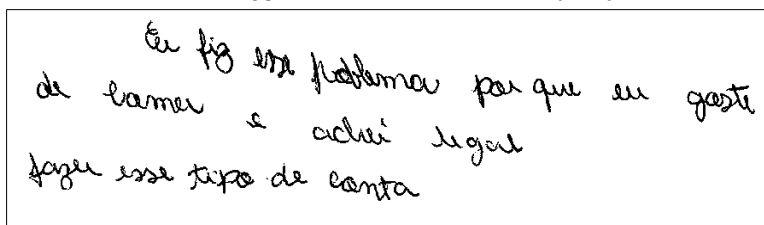 Eu fiz esse problema por que eu goste
de comer e achei legal
fazer esse tipo de conta